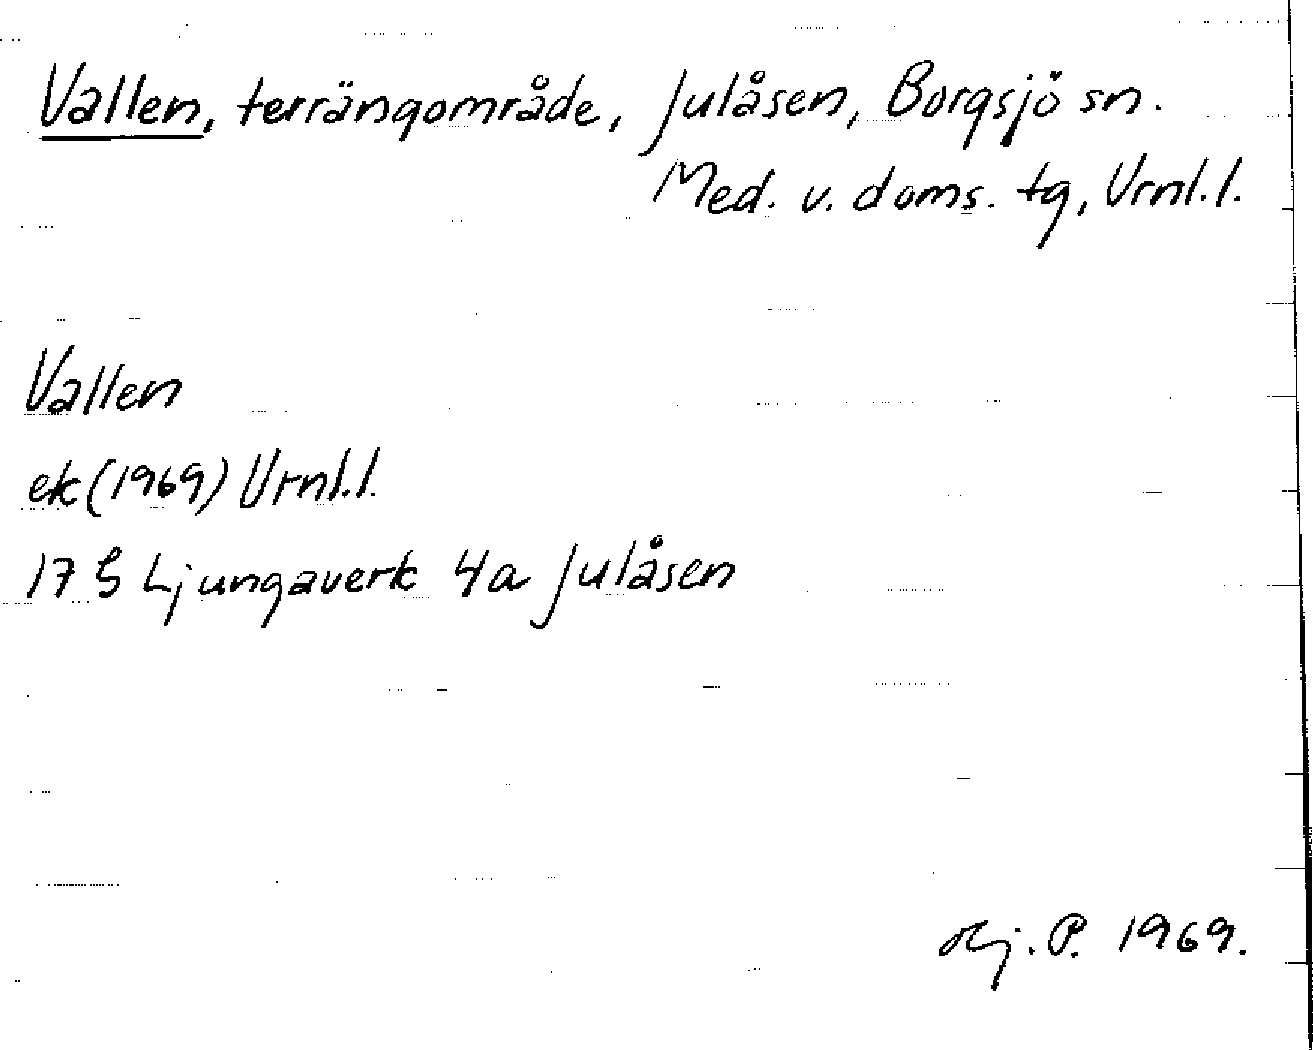 Vallen, terrängområde, Julåsen, Borgsjö sn.
Med. v. doms. tg, Vrnl.l.
Vallen
ek (1969) Vrnl.l.
17 G Ljungaverk 4a Julåsen
P. 1969.